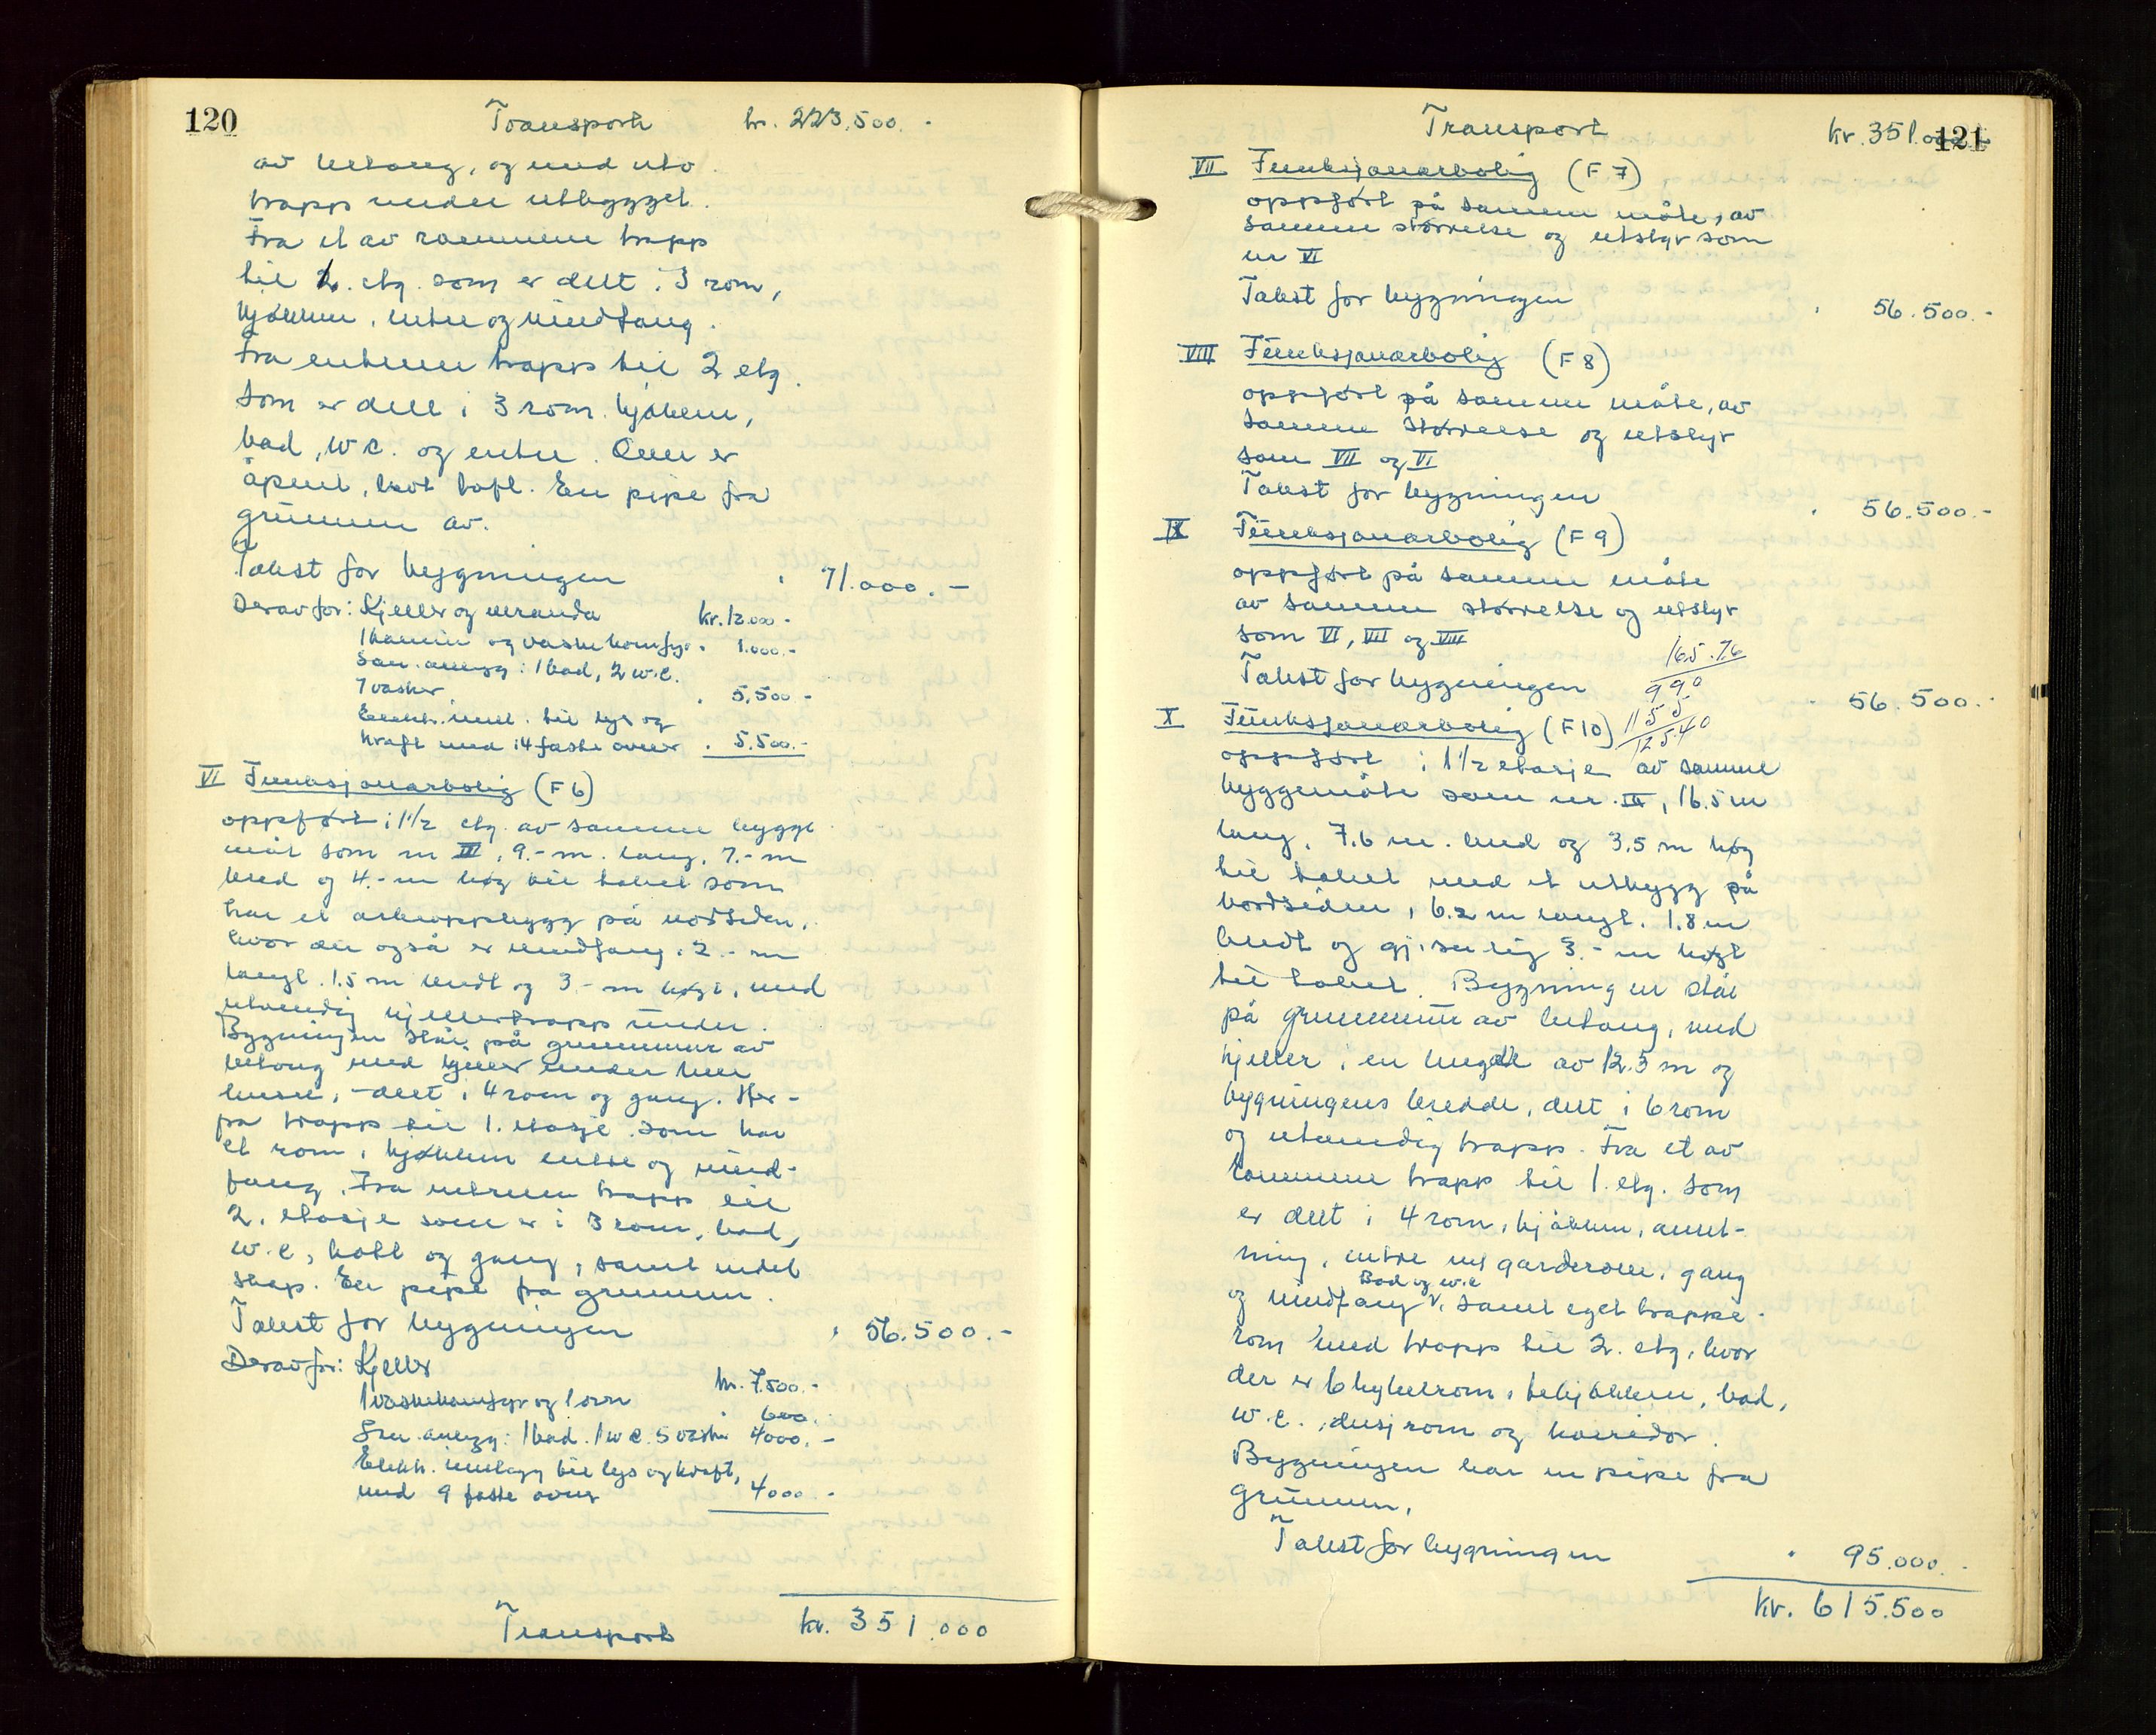 120
Transport kr. 223.500.-
av betong, og med utv.
trapp under utbygget.
Fra et av rommene trapp
til 1. etg. som er delt i 3 rom,
kjøkken, entre og vindfang.
Fra entreen trapp til 2 etg.
som er delt i 3 rom. kjøkken,
bad, W C. og entre. Over er
åpent, lavt loft. En pipe fra
grunnen av.
Takst for bygningen " 71.000.-
Derav for: Kjeller og veranda kr. 12.000.-
1 kamin og vaskekomfyr " 1.000.-
San. anlegg: 1 bad, 2 w.c.
7 vasker " 5.500.-
Elektr. innl. til lys og
kraft med 14 faste ovner " 5.500.-
VI Funksjonærbolig (F 6)
oppført i 1 1/2 etg. av samme bygge
måt som nr III, 9.- m. lang, 7.- m
bred og 4.- m høg til taket som
har et arkoppbygg på nordsiden,
hvor der også er vindfang, 2.- m
langt. 1.5 m bredt og 3.- m høgt, med
utvendig kjellertrapp under.
Bygningen står på grunnmur av
betong med kjeller under hele
huset, - delt i 4 rom og gang. Her-
fra trapp til 1. etasje som har
et rom, kjøkken entre og vind-
fang. Fra entreen trapp til
2. etasje som er i 3 rom, bad,
w.c, kott og gang, samt innb.
skap. En pipe fra grunnen.
Takst for bygningen " 56.500.-
Derav for: Kjeller kr. 7.500.-
1 vaskekomfyr og 1 ovn 600.-
San. anlegg: 1 bad. 1 w c. 5 vaske 4000.-
Elektr. innlegg til lys og kraft,
med 9 faste ovner 4000.-
Transport kr. 351.000
121
Transport kr. 351.000.-
VII Funksjonærbolig (F 7)
oppført på samme måte, av
samme størrelse og utstyr som
nr VI
Takst for bygningen " 56.500.-
VIII Funksjonærbolig (F 8)
oppført på samme måte, av
samme størrelse og utstyr
som VII og VI
Takst for bygningen " 56.500.-
IX Funksjonærbolig (F 9)
oppført på samme måte
av samme størrelse og utstyr
som VI, VII og VIII
16.5 . 7.6
Takst for bygningen 990 " 56.500.-
X Funksjonærbolig (F 10) 1155
12540
oppført i 1 1/2 etasje av samme
byggemåte som nr. III, 16.5 m
lang, 7.6 m. bred og 3.5 m høg
til taket med et utbygg på
nordsiden, 6.2 m langt. 1.8 m
bredt og gj.snitlig 3.- m høgt
til taket. Bygningen står
på grunnmur av betong, med
kjeller i en lengde av 12.5 m og
bygningens bredde, delt i 6 rom
og utvendig trapp. Fra et av
rommene trapp til 1. etg. som
er delt i 4 rom, kjøkken, anret-
ning, entre m/ garderobe, gang
Bad og w.c
og vindfang, samt eget trappe-
rom med trapp til 2. etg, hvor
der er 6 hybelrom, tekjøkken, bad,
w.c., dusjrom og korridor.
Bygningen har en pipe fra
grunnen.
Takst for bygningen " 95.000.-
kr. 615.500